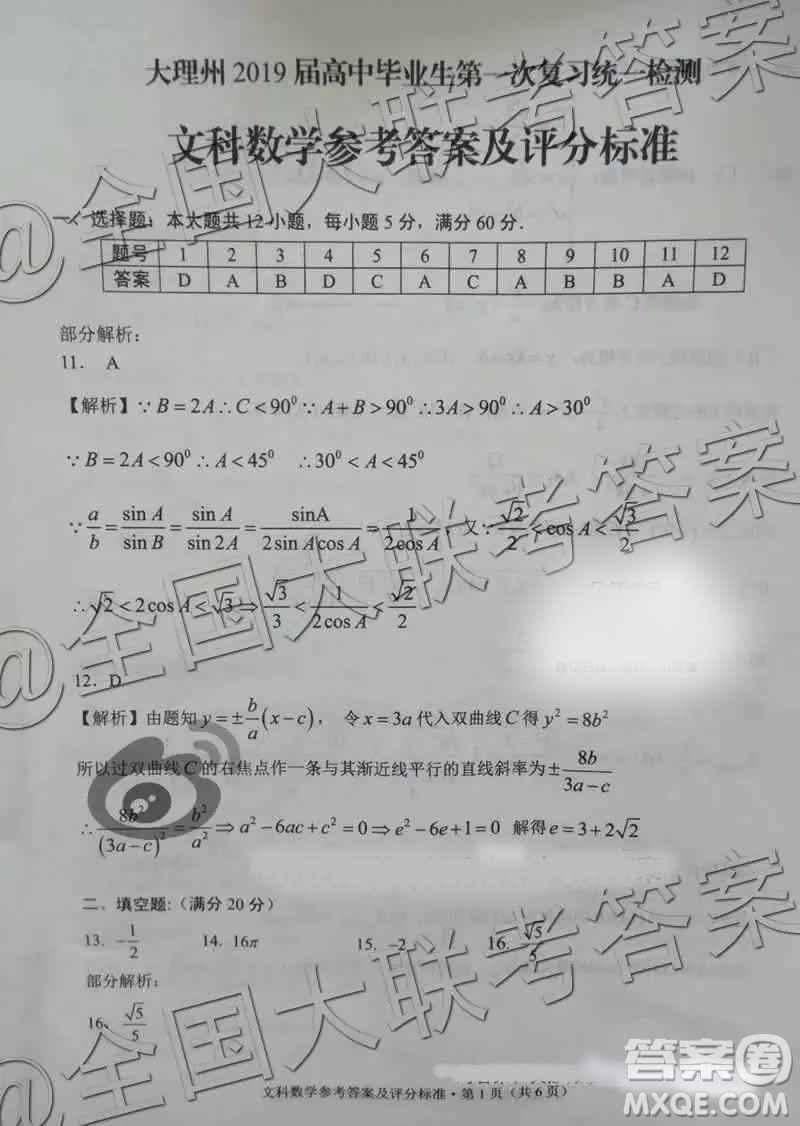 大理州 2019 届高中毕业生第一次复习统一检测
文科数学参考答案及评分标准
一、选择题：本大题共 12 小题，每小题 5 分，满分 60 分.
题号 1 2 3 4 5 6 7 8 9 10 11 12
答案 D A B D C A C A B B A D
部分解析：
11. A
【解析】∵ B=2A ∴ C<90⁰ ∵ A+B>90⁰ ∴ 3A>90⁰ ∴ A>30⁰
∵ B=2A<90⁰ ∴ A<45⁰ ∴ 30⁰<A<45⁰
∵ a/b = sin A/sin B = sin A/sin 2A = sinA/2sin A cos A = 1/2cos A，又∵ √2/2<cos A<√3/2
∴ √2<2cos A<√3 ⇒ √3/3 < 1/2cos A < √2/2
12. D
【解析】由题知 y=±b/a(x−c)， 令 x=3a 代入双曲线 C 得 y²=8b²
所以过双曲线 C 的右焦点作一条与其渐近线平行的直线斜率为 ± 8b/3a−c
∴ 8b²/(3a−c)² = b²/a² ⇒ a²−6ac+c²=0 ⇒ e²−6e+1=0 解得 e=3+2√2
二、填空题：（满分 20 分）
13. −1/2 14. 16π 15. −2 16. √5/5
部分解析：
16、√5/5
文科数学参考答案及评分标准·第 1 页（共 6 页）
@全国大联考答案
@全国大联考答案
答案圈
MXQE.COM